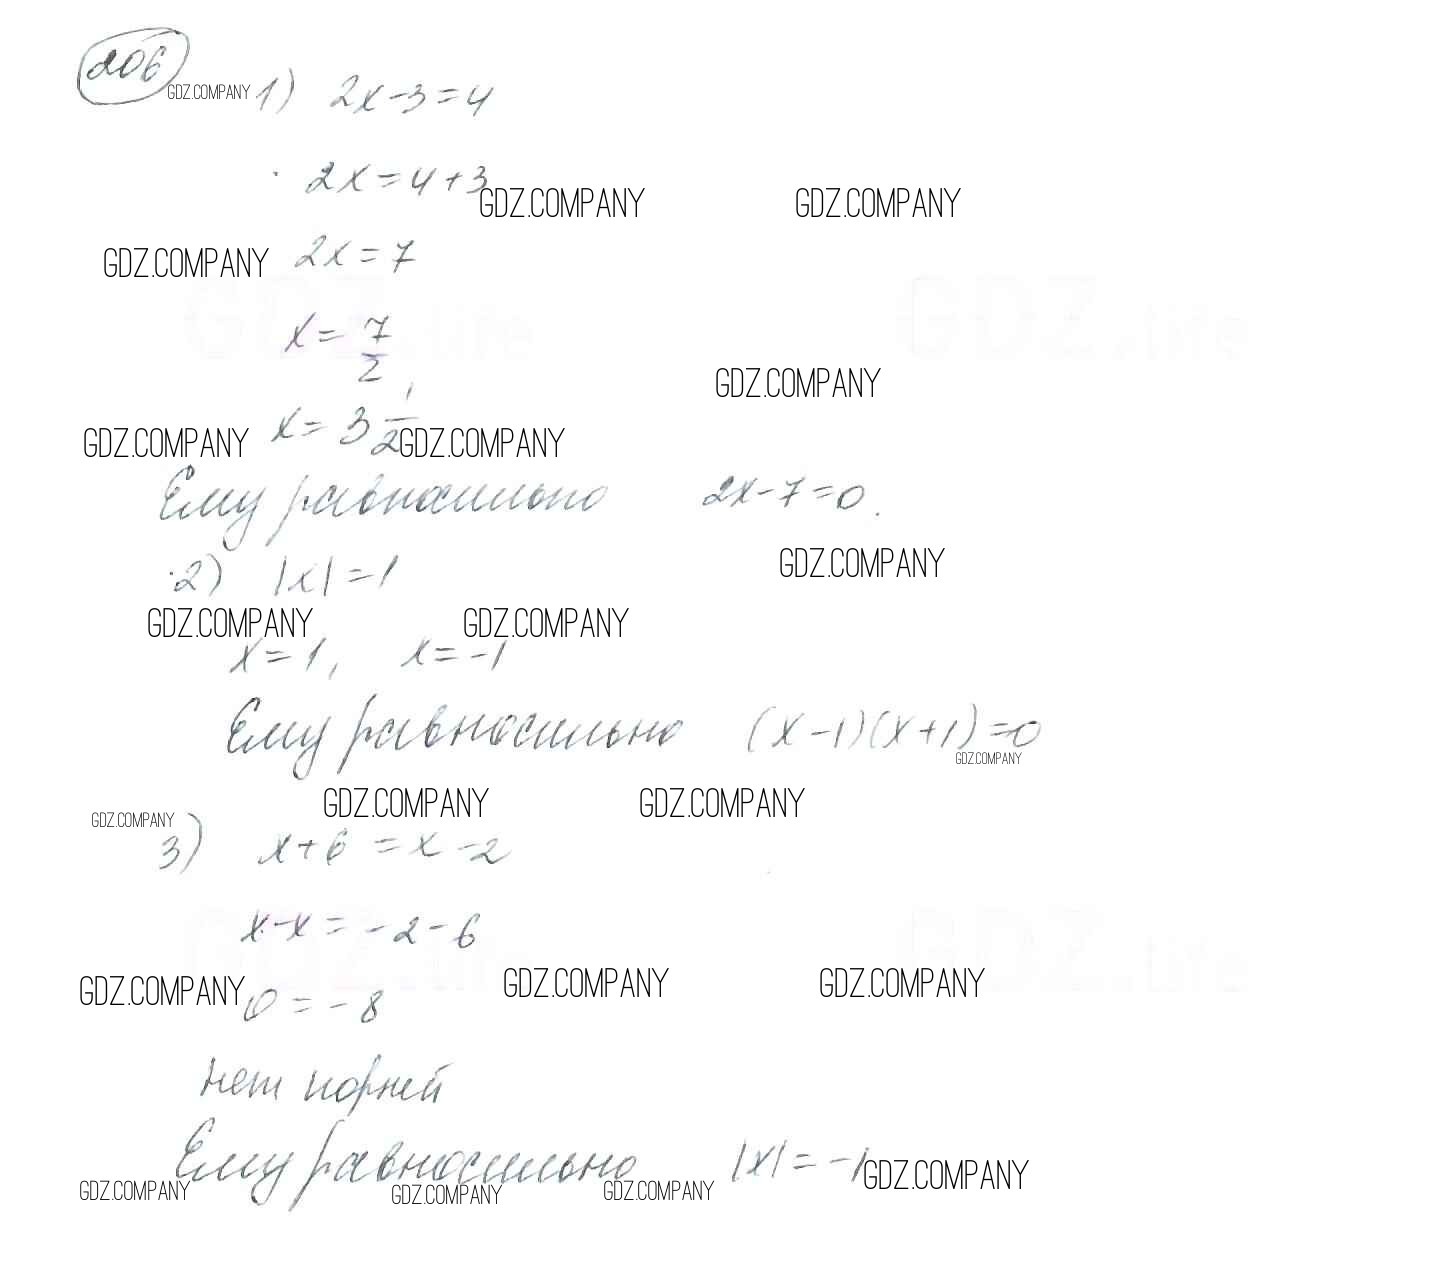 206
GDZ.COMPANY 1) 2x-3=4
2x=4+3
GDZ.COMPANY GDZ.COMPANY
GDZ.COMPANY 2x=7
GDZ.life GDZ.life
x= 7/2
GDZ.COMPANY
GDZ.COMPANY x= 3 1/2 GDZ.COMPANY
Ему равносильно 2x-7=0.
2) |x|=1 GDZ.COMPANY
GDZ.COMPANY GDZ.COMPANY
x=1, x=-1
Ему равносильно (x-1)(x+1)=0
GDZ.COMPANY
GDZ.COMPANY GDZ.COMPANY
GDZ.COMPANY
3) x+6=x-2
x-x=-2-6
GDZ.life GDZ.life
GDZ.COMPANY GDZ.COMPANY GDZ.COMPANY
0=-8
нет корней
Ему равносильно |x|=-1 GDZ.COMPANY
GDZ.COMPANY GDZ.COMPANY GDZ.COMPANY